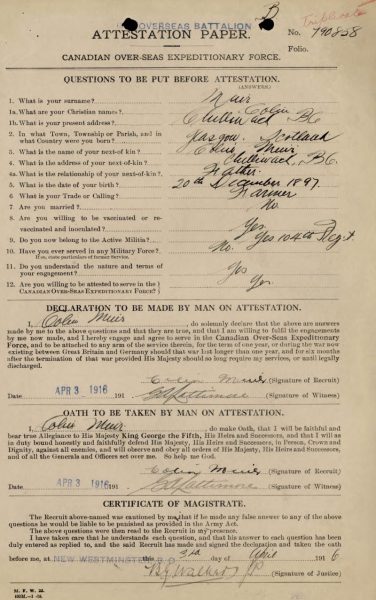 OVERSEAS BATTALION
B
Triplicate
ATTESTATION PAPER.
No. 790858
Folio.
CANADIAN OVER-SEAS EXPEDITIONARY FORCE.
QUESTIONS TO BE PUT BEFORE ATTESTATION.
(ANSWERS)
1. What is your surname? Muir
1a. What are your Christian names? Colin
1b. What is your present address? Chilliwack BC
2. In what Town, Township or Parish, and in
what Country were you born? Glasgow Scotland
3. What is the name of your next-of-kin? Muir
4. What is the address of your next-of-kin? Chilliwack, BC
4a. What is the relationship of your next-of-kin? Father
5. What is the date of your birth? 20th December 1897
6. What is your Trade or Calling? Farmer
7. Are you married? No.
8. Are you willing to be vaccinated or re-
vaccinated and inoculated? Yes
9. Do you now belong to the Active Militia? Yes 104th Regt
10. Have you ever served in any Military Force? No.
If so, state particulars of former Service.
11. Do you understand the nature and terms of
your engagement? Yes
12. Are you willing to be attested to serve in the
CANADIAN OVER-SEAS EXPEDITIONARY FORCE? Yes.
DECLARATION TO BE MADE BY MAN ON ATTESTATION.
I, Colin Muir, do solemnly declare that the above are answers
made by me to the above questions and that they are true, and that I am willing to fulfil the engagements
by me now made, and I hereby engage and agree to serve in the Canadian Over-Seas Expeditionary
Force, and to be attached to any arm of the service therein, for the term of one year, or during the war now
existing between Great Britain and Germany should that war last longer than one year, and for six months
after the termination of that war provided His Majesty should so long require my services, or until legally
discharged.
Colin Muir (Signature of Recruit)
Date APR 3 1916 191 Lattimore (Signature of Witness)
OATH TO BE TAKEN BY MAN ON ATTESTATION.
I, Colin Muir, do make Oath, that I will be faithful and
bear true Allegiance to His Majesty King George the Fifth, His Heirs and Successors, and that I will as
in duty bound honestly and faithfully defend His Majesty, His Heirs and Successors, in Person, Crown and
Dignity, against all enemies, and will observe and obey all orders of His Majesty, His Heirs and Successors,
and of all the Generals and Officers set over me. So help me God.
Colin Muir (Signature of Recruit)
Date APR 3 1916 191 Lattimore (Signature of Witness)
CERTIFICATE OF MAGISTRATE.
The Recruit above-named was cautioned by me that if he made any false answer to any of the above
questions he would be liable to be punished as provided in the Army Act.
The above questions were then read to the Recruit in my presence.
I have taken care that he understands each question, and that his answer to each question has been
duly entered as replied to, and the said Recruit has made and signed the declaration and taken the oath
before me, at NEW WESTMINSTER B.C. this 3rd day of April 1916
JP (Signature of Justice)
M. F. W. 23.